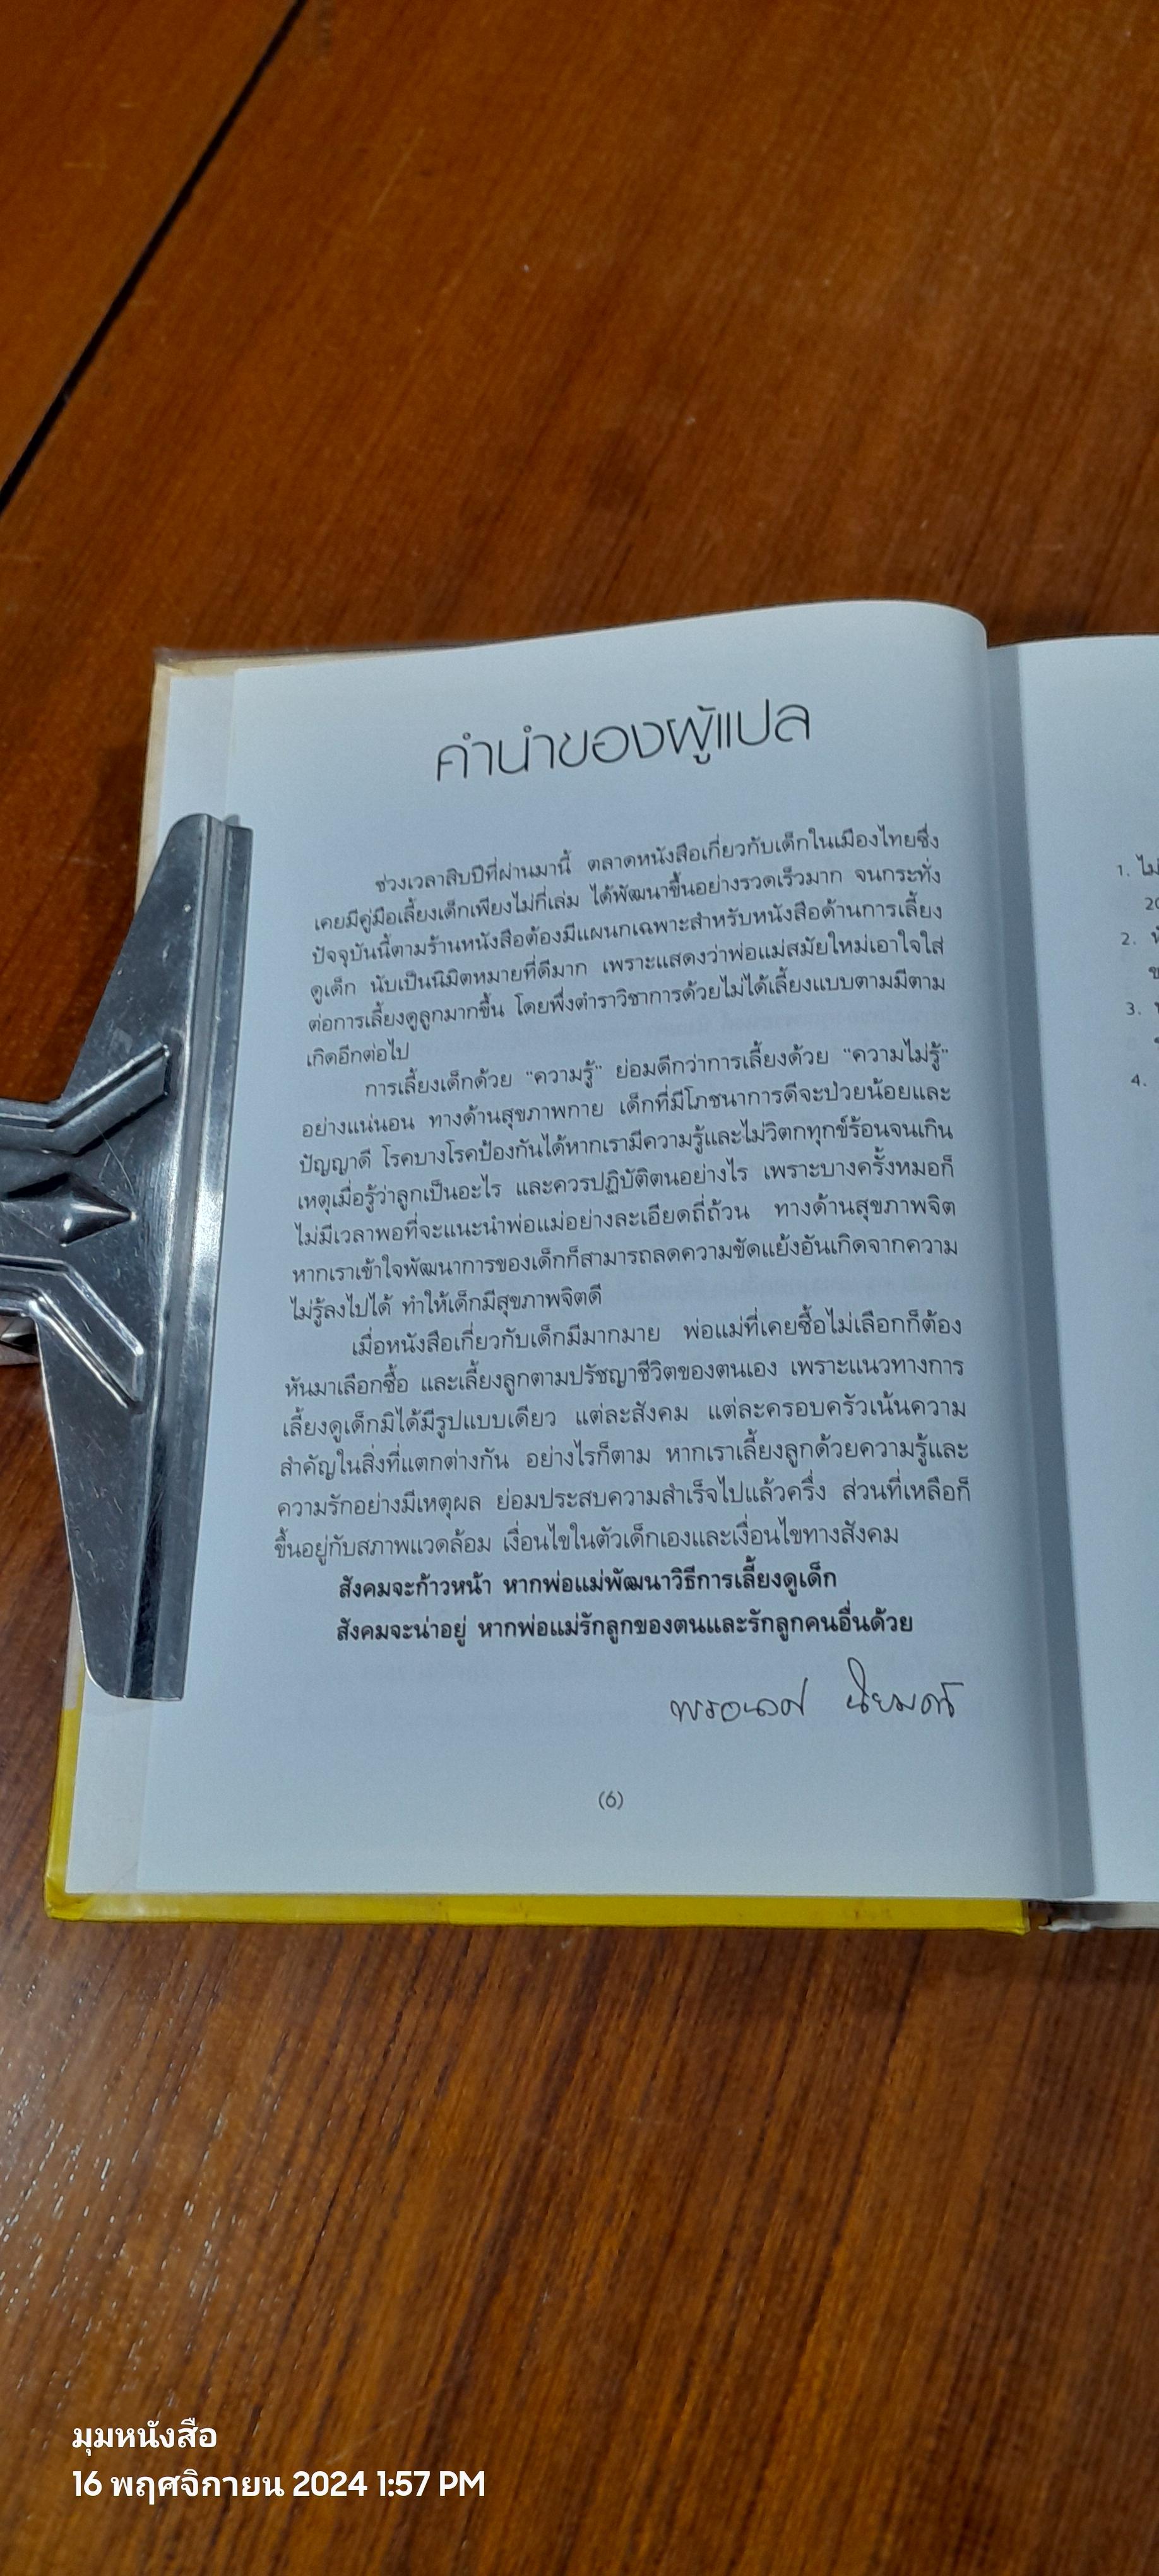 คำนำของผู้แปล
ช่วงเวลาสิบปีที่ผ่านมานี้ ตลาดหนังสือเกี่ยวกับเด็กในเมืองไทยซึ่ง
เคยมีคู่มือเลี้ยงเด็กเพียงไม่กี่เล่ม ได้พัฒนาขึ้นอย่างรวดเร็วมาก จนกระทั่ง
ปัจจุบันนี้ตามร้านหนังสือต้องมีแผนกเฉพาะสำหรับหนังสือด้านการเลี้ยง
ดูเด็ก นับเป็นนิมิตหมายที่ดีมาก เพราะแสดงว่าพ่อแม่สมัยใหม่เอาใจใส่
ต่อการเลี้ยงดูลูกมากขึ้น โดยพึ่งตำราวิชาการด้วยไม่ได้เลี้ยงแบบตามมีตาม
เกิดอีกต่อไป
การเลี้ยงเด็กด้วย “ความรู้” ย่อมดีกว่าการเลี้ยงด้วย “ความไม่รู้”
อย่างแน่นอน ทางด้านสุขภาพกาย เด็กที่มีโภชนาการดีจะป่วยน้อยและ
ปัญญาดี โรคบางโรคป้องกันได้หากเรามีความรู้และไม่วิตกทุกข์ร้อนจนเกิน
เหตุเมื่อรู้ว่าลูกเป็นอะไร และควรปฏิบัติตนอย่างไร เพราะบางครั้งหมอก็
ไม่มีเวลาพอที่จะแนะนำพ่อแม่อย่างละเอียดถี่ถ้วน ทางด้านสุขภาพจิต
หากเราเข้าใจพัฒนาการของเด็กก็สามารถลดความขัดแย้งอันเกิดจากความ
ไม่รู้ลงไปได้ ทำให้เด็กมีสุขภาพจิตดี
เมื่อหนังสือเกี่ยวกับเด็กมีมากมาย พ่อแม่ที่เคยซื้อไม่เลือกก็ต้อง
หันมาเลือกซื้อ และเลี้ยงลูกตามปรัชญาชีวิตของตนเอง เพราะแนวทางการ
เลี้ยงดูเด็กมิได้มีรูปแบบเดียว แต่ละสังคม แต่ละครอบครัวเน้นความ
สำคัญในสิ่งที่แตกต่างกัน อย่างไรก็ตาม หากเราเลี้ยงลูกด้วยความรู้และ
ความรักอย่างมีเหตุผล ย่อมประสบความสำเร็จไปแล้วครึ่ง ส่วนที่เหลือก็
ขึ้นอยู่กับสภาพแวดล้อม เงื่อนไขในตัวเด็กเองและเงื่อนไขทางสังคม
สังคมจะก้าวหน้า หากพ่อแม่พัฒนาวิธีการเลี้ยงดูเด็ก
สังคมจะน่าอยู่ หากพ่อแม่รักลูกของตนและรักลูกคนอื่นด้วย
(6)
1. ไม่
20
2.
3.
4.
มุมหนังสือ
16 พฤศจิกายน 2024 1:57 PM